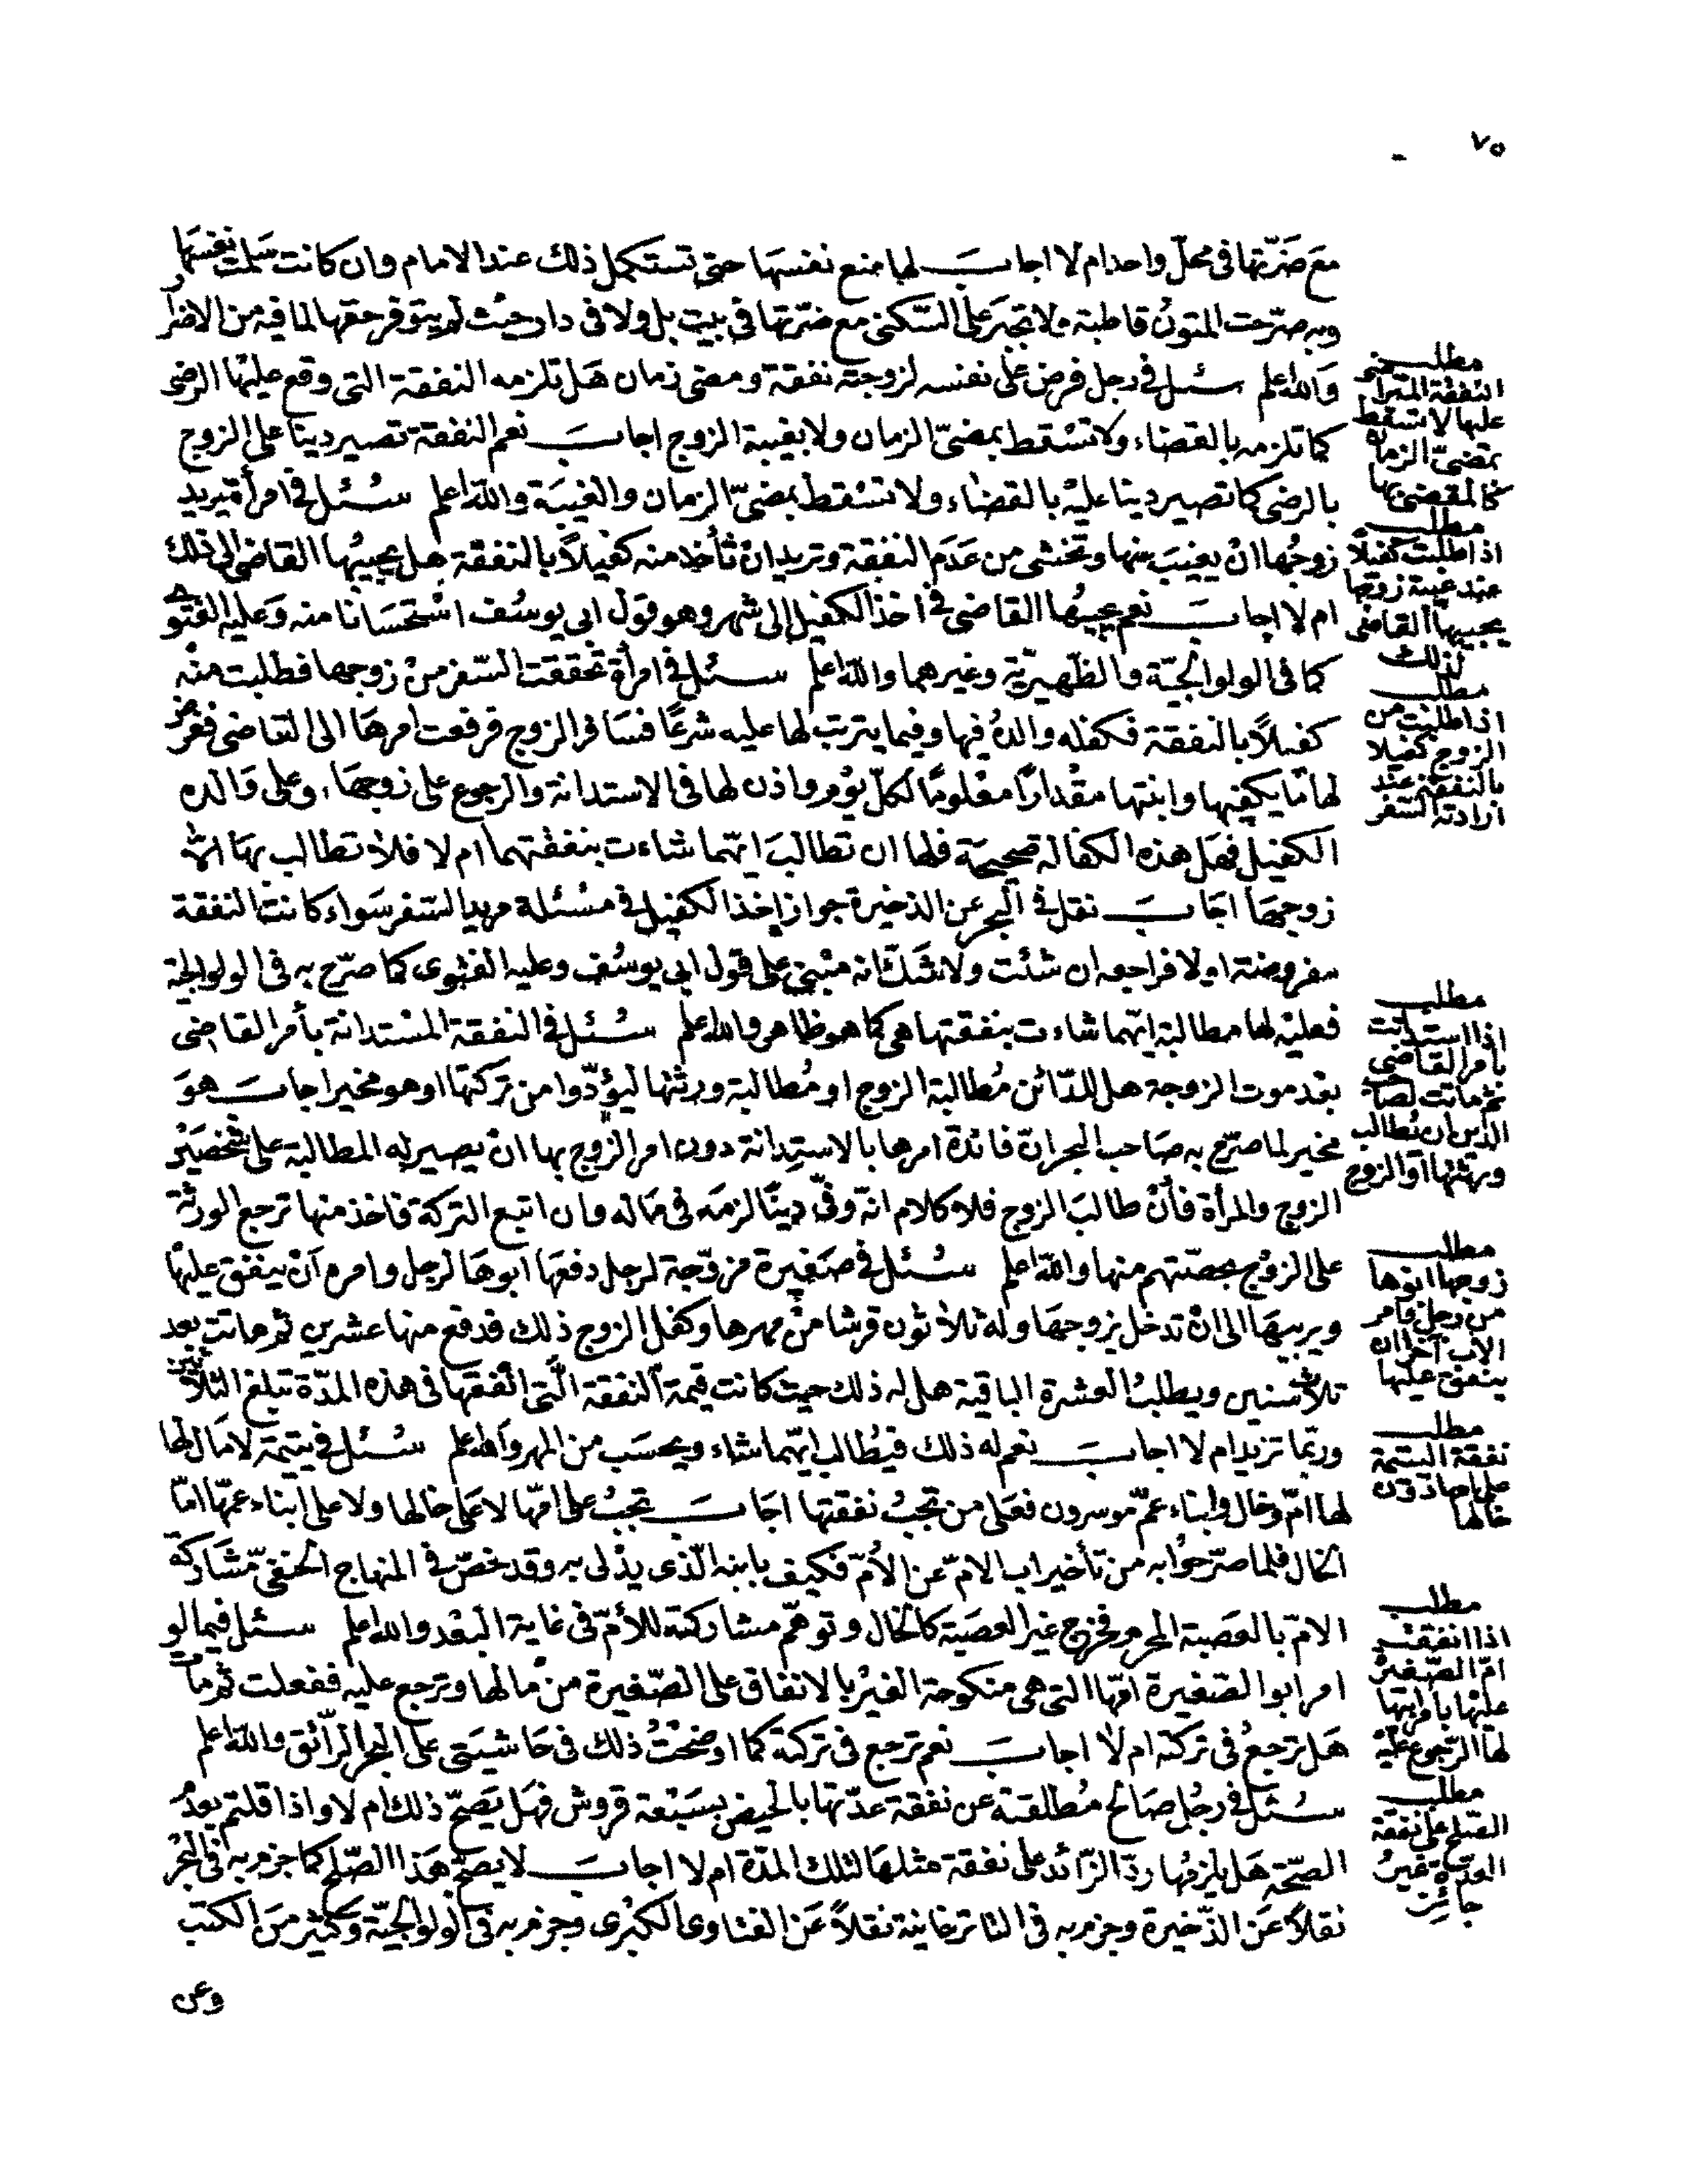 ٧٥
مع ضرّتها فى محلّ واحد ام لا اجاب لها منع نفسها حتى تستكمل ذلك عند الامام وان كانت سلمت نفسها
وبه صرّحت المتون قاطبة ولا تجبر على السّكنى مع ضرّتها فى بيت بل ولا فى دار حيث لم يتوفر حقها لما فيه من الاضرار
والله اعلم سئل فى رجل فرض على نفسه لزوجته نفقة ومضى زمان هل تلزمه النفقة التى وقع عليها الرضى
كما تلزمه بالقضاء ولا تسقط بمضىّ الزمان ولا بغيبة الزوج اجاب نعم النفقة تصير دينا على الزوج
بالرضى كما تصير دينا عليه بالقضاء ولا تسقط بمضىّ الزمان والغيبة والله اعلم سئل فى امرأة يريد
زوجها ان يغيب عنها وتخشى من عدم النفقة وتريد ان تأخذ منه كفيلاً بالنفقة هل يجيبها القاضى الى ذلك
ام لا اجاب نعم يجيبها القاضى فى اخذ الكفيل الى شهر وهو قول ابى يوسف استحسانا منه وعليه الفتوى
كما فى الولوالجيّة والظهيريّة وغيرهما والله اعلم سئل فى امرأة تحققت السّفر من زوجها فطلبت منه
كفيلاً بالنفقة فكفله والده فيها وفيما يترتب لها عليه شرعًا فسافر الزوج فرفعت امرها الى القاضى ففرض
لها ما يكفيها وابنتها مقدارًا معلومًا لكلّ يوم واذن لها فى الاستدانة والرجوع على زوجها وعلى والده
الكفيل فهل هذه الكفالة صحيحة فلها ان تطالب ايّهما شاءت بنفقتهما ام لا فلا تطالب بها الّا
زوجها اجاب نقل فى البحر عن الذخيرة جواز اخذ الكفيل فى مسئلة مريد السّفر سواء كانت النفقة
مفروضة او لا فراجعه ان شئت ولا شكّ انه مبنى على قول ابى يوسف وعليه الفتوى كما صرّح به فى الولوالجية
فعليه لها مطالبة ايّهما شاءت بنفقتها هى كما هو ظاهر والله اعلم سئل فى النفقة المستدانة بأمر القاضى
بعد موت الزوجة هل للدّائن مطالبة الزوج او مطالبة ورثتها ليؤدّوا من تركتها او هو مخير اجاب هو
مخير لما صرّح به صاحب البحر انّ فائدة امرها بالاستدانة دون امر الزوج بها ان يصير له المطالبة على شخصين
الزوج والمرأة فأن طالب الزوج فلا كلام انّه وفىّ دينًا لزمه فى ماله وان اتبع التركة فاخذ منها ترجع الورثة
على الزوج بحصّتهم منها والله اعلم سئل فى صغيرة مزوّجة لرجل دفعها ابوها لرجل وامره أن ينفق عليها
ويربيها الى ان تدخل بزوجها وله ثلاثون قرشا من مهرها وكفل الزوج ذلك فدفع منها عشرين ثم ماتت بعد
ثلاث سنين ويطلب العشرة الباقية هل له ذلك حيث كانت قيمة النفقة الّتى انفقها فى هذه المدّة تبلغ الثلاثين
وربّما تزيد ام لا اجاب نعم له ذلك فيطالب ايّهما شاء ويحسب من المهر والله اعلم سئل فى يتيمة لا مال لها
لها امّ وخال وابناء عمّ موسرون فعلى من تجب نفقتها اجاب تجب على امّها لا على خالها ولا على ابناء عمّها امّا
الخال فلما صرّحوا به من تأخير اب الامّ عن الأمّ فكيف بابنه الّذى يدلى به وقد خصّ فى المنهاج الحنفىّ مشاركة
الامّ بالعصبة المحرم فخرج غير العصبة كالخال وتوهّم مشاركته للأمّ فى غاية البعد والله اعلم سئل فيما لو
امر ابو الصّغيرة امّها التى هى منكوحة الغير بالانفاق على الصّغيرة من مالها وترجع عليه ففعلت ثم مات
هل ترجع فى تركته ام لا اجاب نعم ترجع فى تركته كما اوضحت ذلك فى حاشيتى على البحر الرّائق والله اعلم
سئل فى رجل صالح مطلقته عن نفقة عدّتها بالحيض بسبعة قروش فهل يصحّ ذلك ام لا واذا قلتم بعدم
الصّحّة هل يلزمها ردّ الزّائد على نفقة مثلها لتلك المدّة ام لا اجاب لا يصحّ هذا الصّلح كما جزم به فى البحر
نقلاً عن الذّخيرة وجزم به فى التاترخانية نقلاً عن الفتاوى الكبرى وجزم به فى الولوالجيّة وكثير من الكتب
وعن
مطلب
النفقة المتراضى
عليها لا تسقط
بمضىّ الزمان
كالمقضى بها
مطلب
اذا طلبت كفيلاً
عند غيبة زوجها
يجيبها القاضى
لذلك
مطلب
اذا طلبت من
الزوج كفيلا
بالنفقة عند
ارادته السّفر
مطلب
اذا استدانت
بامر القاضى
ثم ماتت لصاحب
الدّين ان يطالب
ورثتها او الزوج
مطلب
زوجها ابوها
من رجل فامر
الاب آخر ان
ينفق عليها
مطلب
نفقة اليتيمة
على امها دون
خالها
مطلب
اذا انفقت
امّ الصّغيرة
عليها بامر ابيها
لها الرّجوع عليه
مطلب
الصّلح على نفقة
العدّة غير
جائز